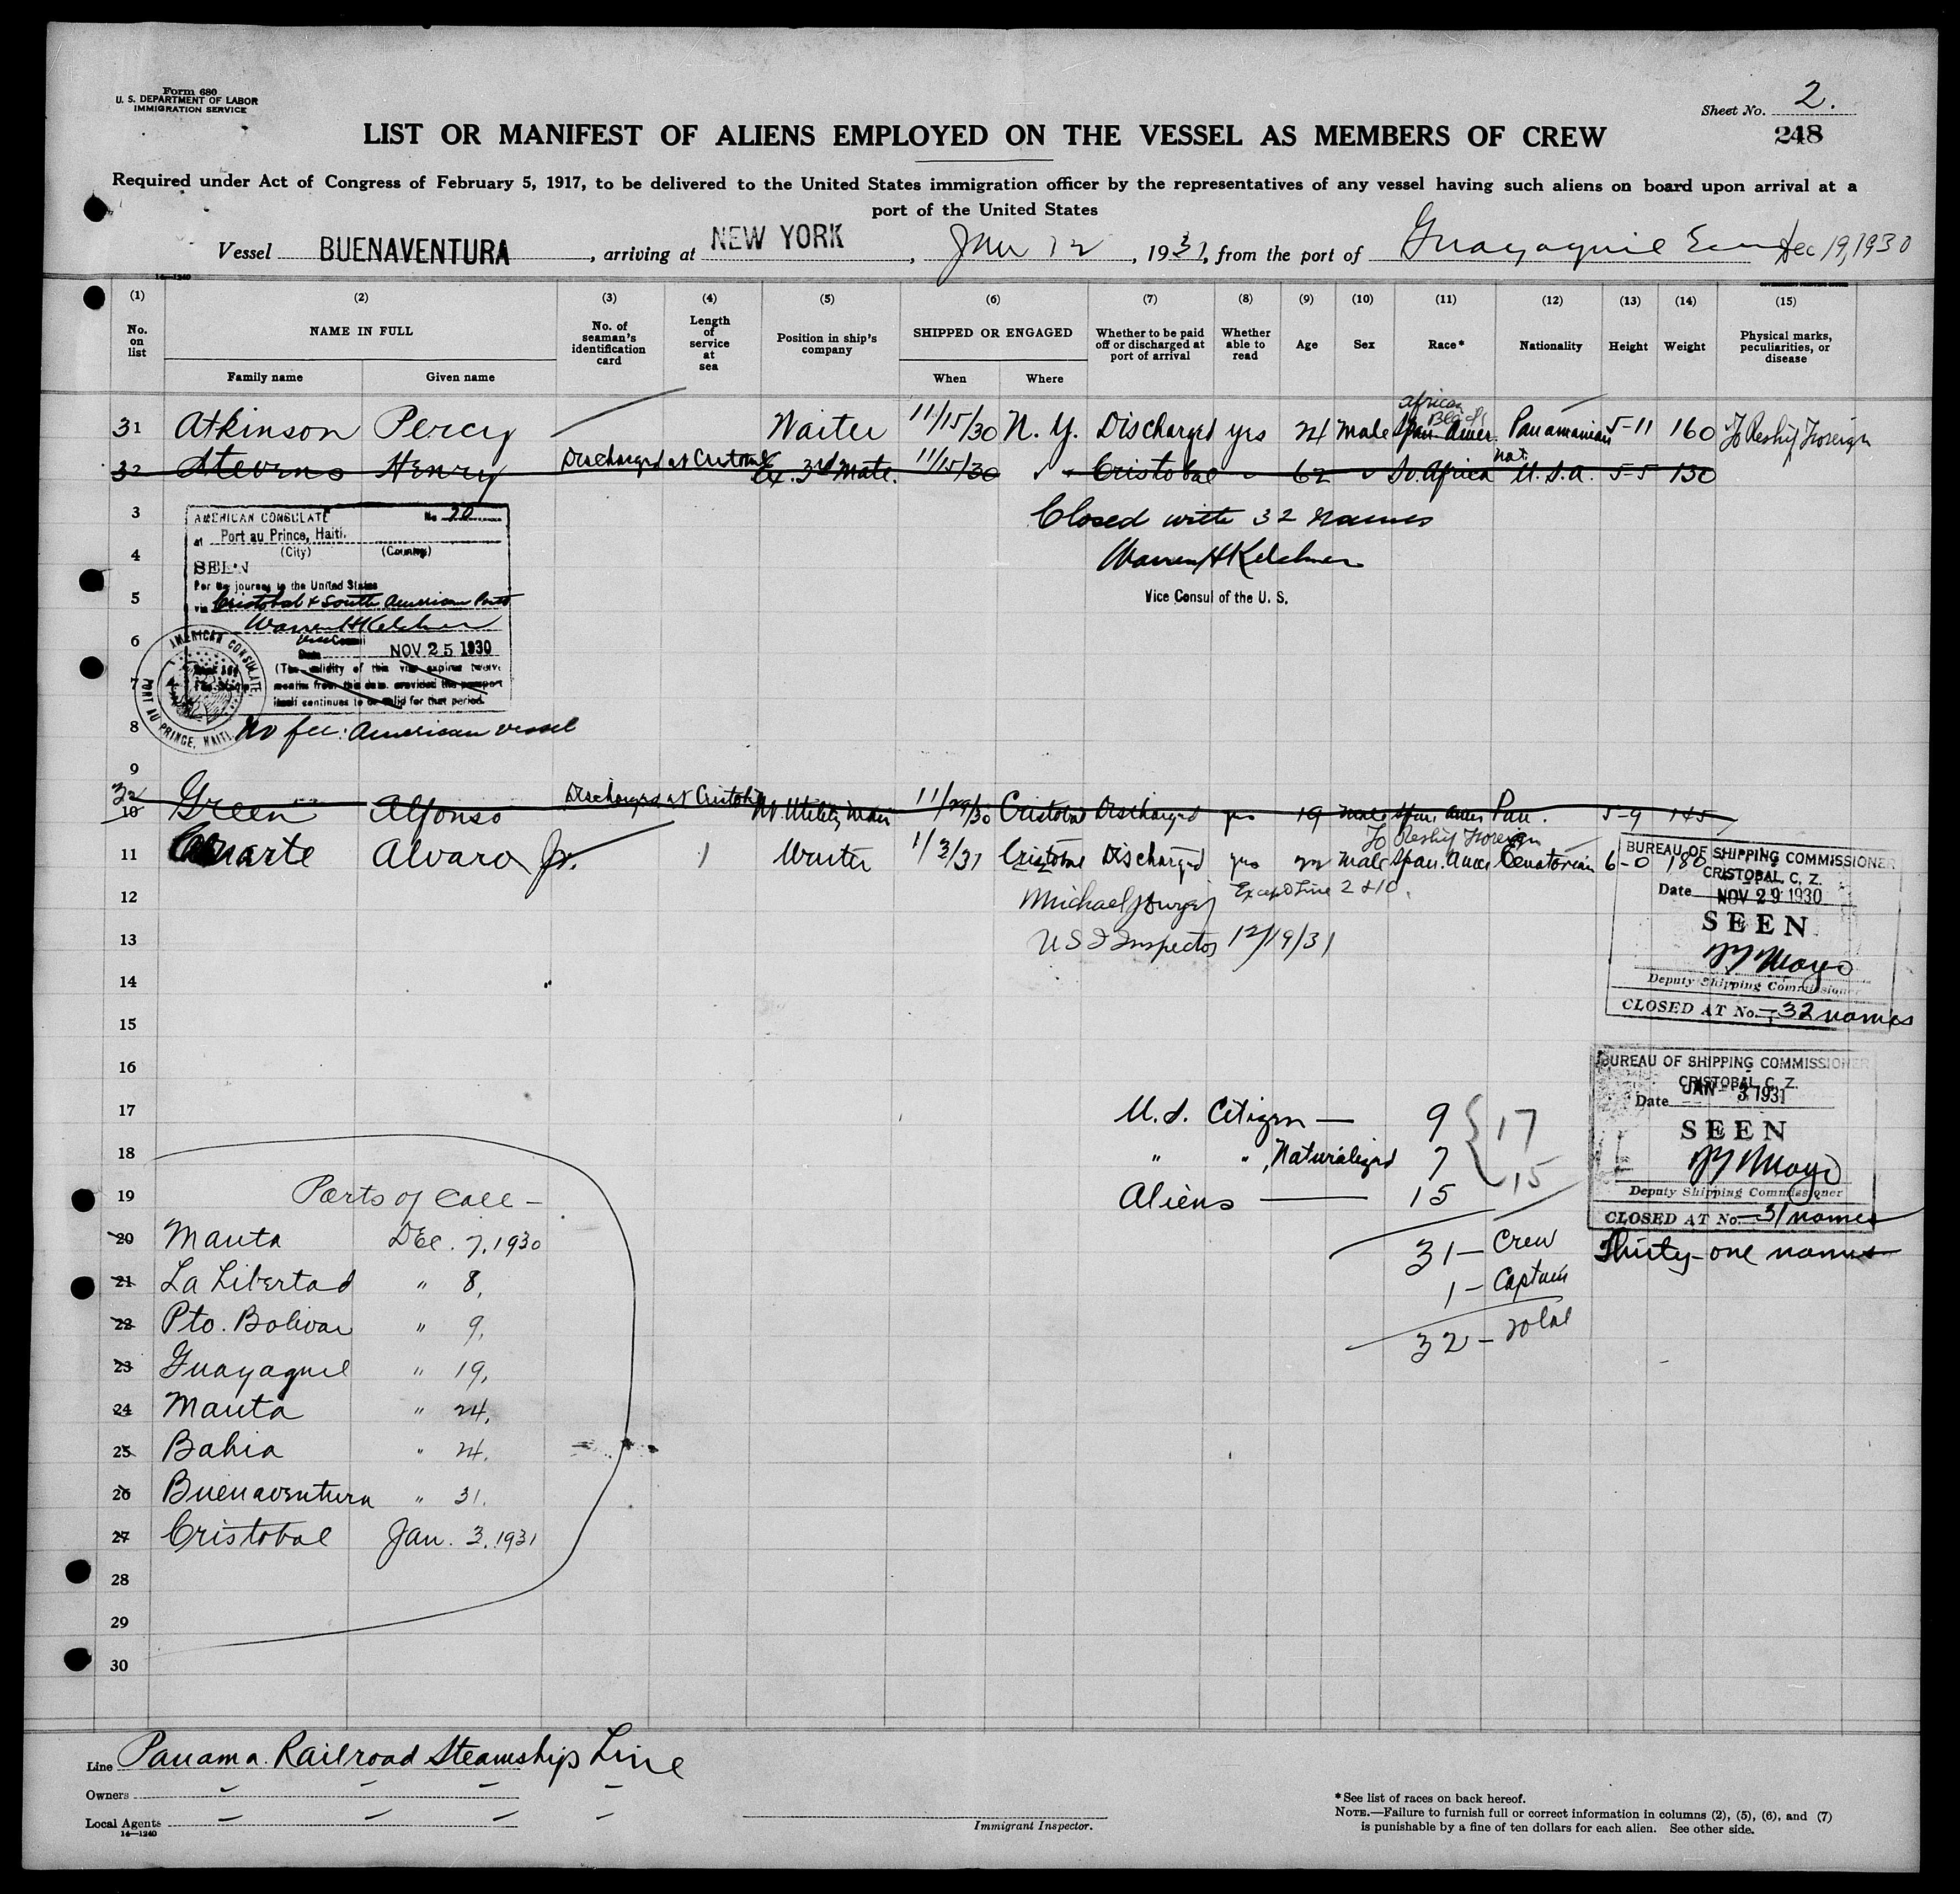 Form 680
U. S. DEPARTMENT OF LABOR
IMMIGRATION SERVICE
Sheet No. 2.
248
LIST OR MANIFEST OF ALIENS EMPLOYED ON THE VESSEL AS MEMBERS OF CREW
Required under Act of Congress of February 5, 1917, to be delivered to the United States immigration officer by the representatives of any vessel having such aliens on board upon arrival at a
port of the United States
Vessel BUENAVENTURA, arriving at NEW YORK, Jan 12, 1931, from the port of Guayaquil Dec 19, 1930
14—1240
(1) (2) (3) (4) (5) (6) (7) (8) (9) (10) (11) (12) (13) (14) (15)
No. on list
NAME IN FULL
Family name Given name
No. of seaman's identification card
Length of service at sea
Position in ship's company
SHIPPED OR ENGAGED
When Where
Whether to be paid off or discharged at port of arrival
Whether able to read
Age
Sex
Race*
Nationality
Height
Weight
Physical marks, peculiarities, or disease
African
Black
31 Atkinson Percy Waiter 11/15/30 N. Y. Discharged yes 24 male Span. Amer. Panamanian 5-11 160 To Reship Foreign
32 Stevens Henry Discharged at Cristobal Ex. 3rd Mate. 11/15/30 Cristobal 62 So. Africa nat. U.S.A. 5-5 130
3
Closed with 32 names
4
Warren H Kelchner
5
Vice Consul of the U. S.
AMERICAN CONSULATE No 20
at Port au Prince, Haiti.
(City) (Country)
SEEN
For the journey to the United States
via Cristobal & South American Ports
Warren H Kelchner
Vice Consul
Date NOV 25 1930
(The validity of this visa expires twelve
months from this date, provided the passport
itself continues to be valid for that period.
AMERICAN CONSULATE
PORT AU PRINCE, HAITI
6
7
8
No fee: American vessel
9
32
10 Green Alfonso Discharged at Cristobal Utility Man 11/29/30 Cristobal Discharged yes 19 male Span. Amer Pan. 5-9 145
To Reship Foreign
11 uarte Alvaro Jr. 1 Waiter 1/3/31 Cristobal Discharged yes male Span. Amer 6-0 180
12
Michael Except Line 2 & 10.
13
U S I Inspector 12/19/31
14
15
16
17
18
BUREAU OF SHIPPING COMMISSIONER
CRISTOBAL, C. Z.
Date NOV 29 1930
SEEN
Mayo
Deputy Shipping Commissioner
CLOSED AT No. 32 names
BUREAU OF SHIPPING COMMISSIONER
CRISTOBAL, C. Z.
Date JAN - 3 1931
SEEN
Mayo
Deputy Shipping Commissioner
CLOSED AT No. 31 names
Thirty-one names
U.S. Citizen — 9 17
" " , Naturalized 7 15
Aliens — 15
31 — Crew
1 — Captain
32 — Total
19
Ports of Call -
20 Manta Dec. 7, 1930
21 La Libertad " 8,
22 Pto. Bolivar " 9,
23 Guayaquil " 19,
24 Manta " 24,
25 Bahia " 24.
26 Buenaventura " 31.
27 Cristobal Jan. 3, 1931
28
29
30
Line Panama Railroad Steamship Line
Owners " " " "
Local Agents " " " "
14—1240
Immigrant Inspector.
*See list of races on back hereof.
NOTE.—Failure to furnish full or correct information in columns (2), (5), (6), and (7)
is punishable by a fine of ten dollars for each alien. See other side.